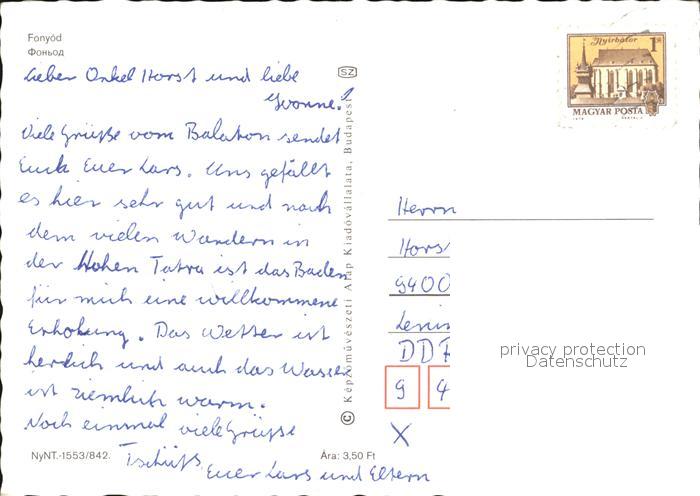 Fonyód
Фоньод
Lieber Onkel Horst und liebe
Yvonne!
Viele Grüße vom Balaton sendet
Euch Euer Lars. Uns gefällt
es hier sehr gut und nach
dem vielen Wandern in
der Hohen Tatra ist das Baden
für mich eine willkommene
Erholung. Das Wetter ist
herrlich und auch das Wasser
ist ziemlich warm.
Noch einmal viele Grüße
Tschüß
Euer Lars und Eltern
NyNT.-1553/842.
Ára: 3,50 Ft
SZ
© Képzőművészeti Alap Kiadóvállalata, Budapest
Nyírbátor
1 Ft
MAGYAR POSTA
Herrn
Hors
9400
DDR
9 4
X
privacy protection
Datenschutz